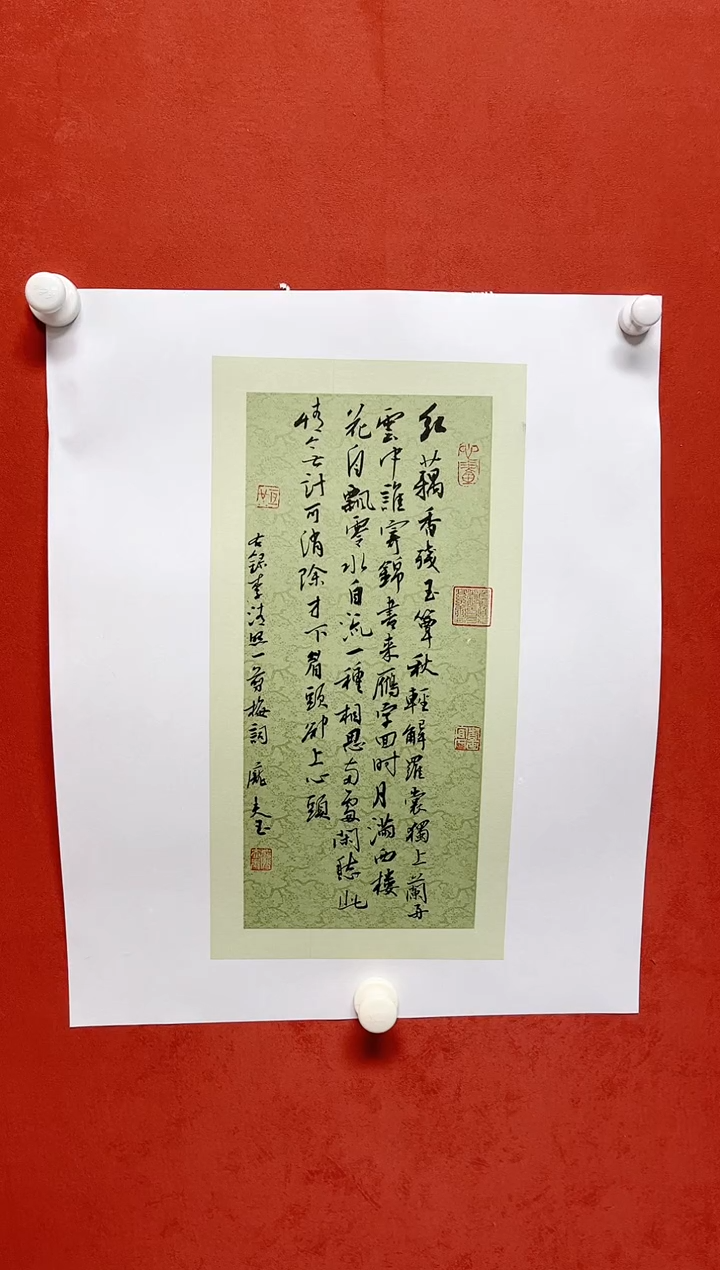 紅藕香残玉簟秋輕解羅裳獨上蘭舟
雲中誰寄錦書来雁字回時月滿西楼
花自飄零水自流一種相思两處閑愁此
情无計可消除才下眉頭卻上心頭
右錄李清照一剪梅詞 龐夫玉